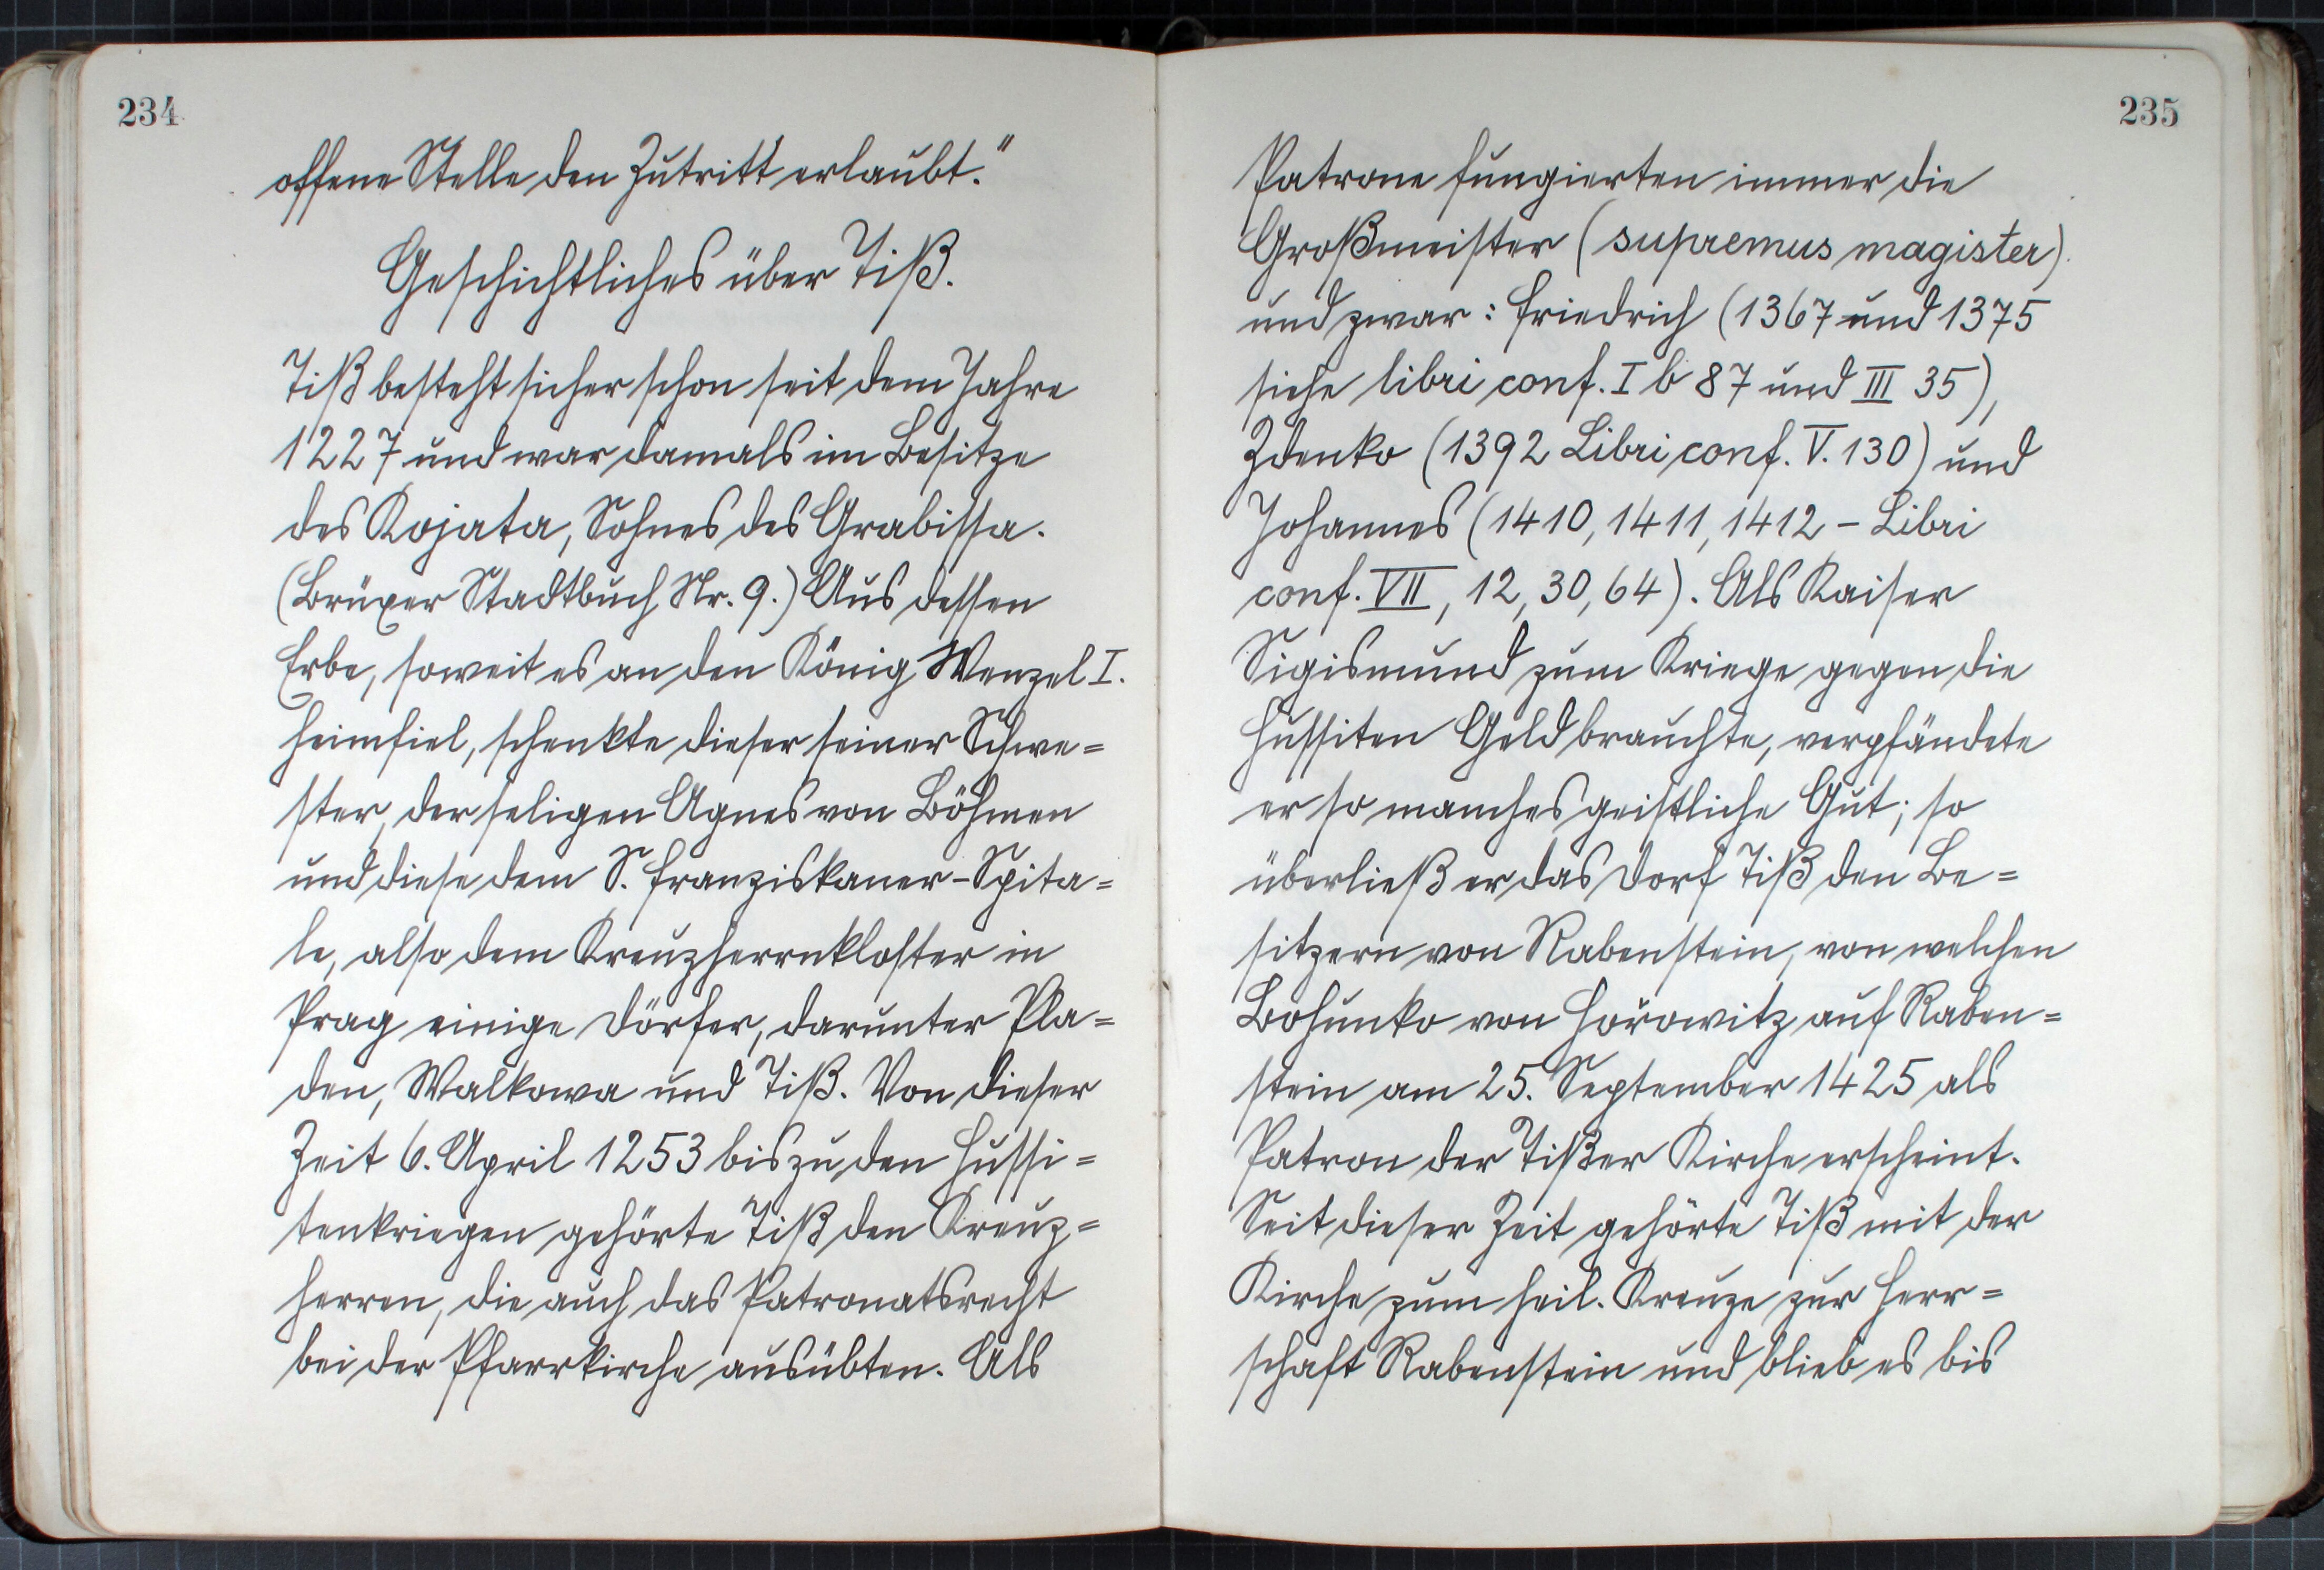 234
offene Stelle den Zutritt erlaubt."
Geschichtliches über Tiß.
Tiß besteht sicher schon seit dem Jahre
1227 und war damals im Besitze
des Kojata, Sohnes des Grabissa.
(Brüxer Stadtbuch Nr. 9.) Aus dessen
Erbe, soweit es an den König Wenzel I.
heimfiel, schenkte dieser seiner Schwe=
ster, der seligen Agnes von Böhmen
und diese dem S. Franziskaner-Spita=
le, also dem Kreuzherrnkloster in
Prag einige Dörfer, darunter Pla=
den, Walkowa und Tiß. Von dieser
Zeit 6. April 1253 bis zu den Hussi=
tenkriegen gehörte Tiß den Kreuz=
herren, die auch das Patronatsrecht
bei der Pfarrkirche ausübten. Als
235
Patrone fungierten immer die
Großmeister (supremus magister)
und zwar: Friedrich (1367 und 1375
siehe libri conf. I b 87 und III 35),
Zdenko (1392 Libri conf. V. 130) und
Johannes (1410, 1411, 1412 - Libri
conf. VII, 12, 30, 64). Als Kaiser
Sigismund zum Kriege gegen die
Hussiten Geld brauchte, verpfändete
er so manches geistliche Gut; so
überließ er das Dorf Tiß den Be=
sitzern von Rabenstein, von welchen
Bohunko von Hořowitz auf Raben=
stein am 25. September 1425 als
Patron der Tißer Kirche erscheint.
Seit dieser Zeit gehörte Tiß mit der
Kirche zum heil. Kreuze zur Herr=
schaft Rabenstein und blieb es bis